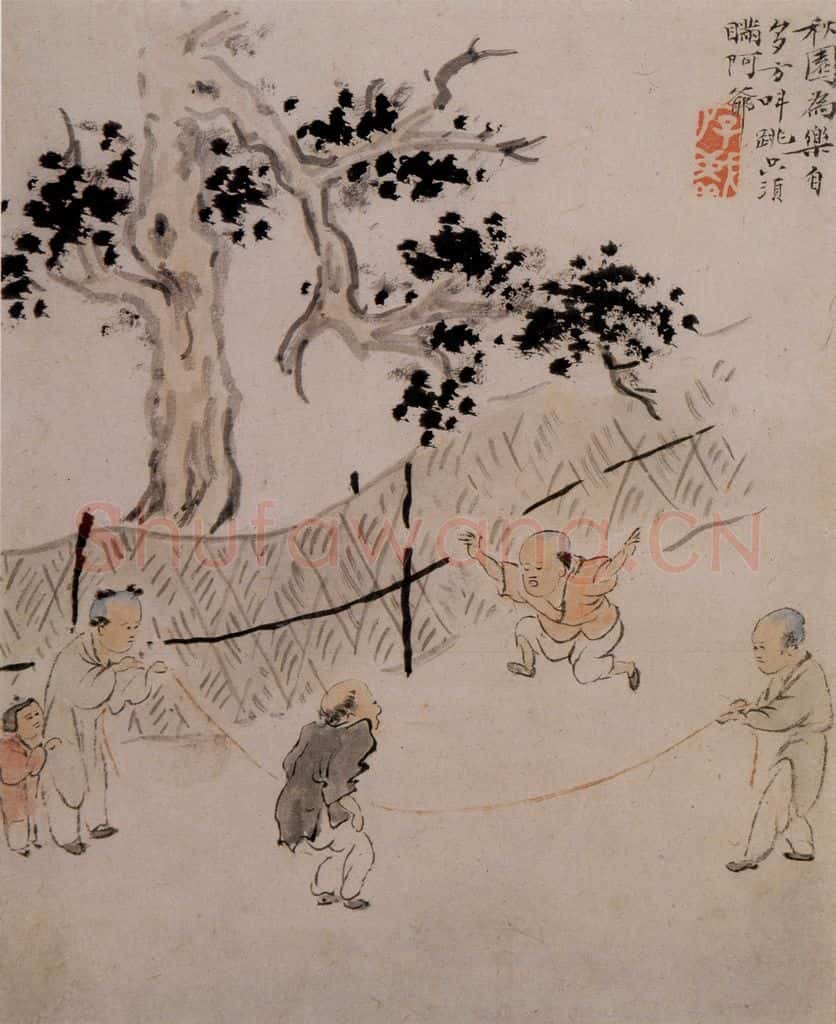 秋園為樂自
多方叫跳只須
瞞阿爺
Shufawang.CN